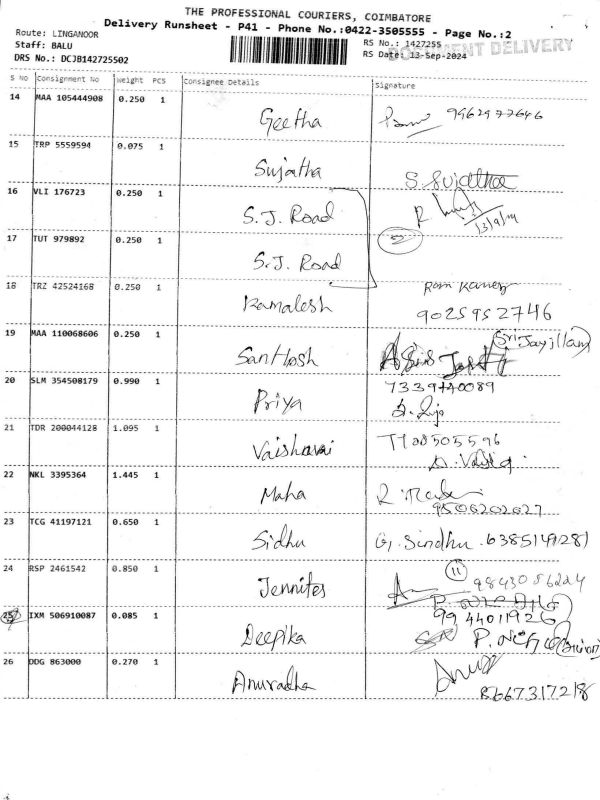 THE PROFESSIONAL COURIERS, COIMBATORE
Delivery Runsheet - P41 - Phone No.:0422-3505555 - Page No.:2
Route: LINGANOOR
Staff: BALU
DRS No.: DCJB142725502
RS No.: 1427255
RS Date: 13-Sep-2024
DOCUMENT DELIVERY
S No Consignment No Weight PCS Consignee Details Signature
14 MAA 105444908 0.250 1 Geetha 9962977646
15 TRP 5559594 0.075 1 Sujatha S. Sujatha
16 VLI 176723 0.250 1 S.J. Road
13/9/24
17 TUT 979892 0.250 1 S.J. Road 2
18 TRZ 42524168 0.250 1 Kamalesh
9025952746
19 MAA 110068606 0.250 1 Santhosh
20 SLM 354508179 0.990 1 Priya 7339440089
21 TDR 200044128 1.095 1 Vaishnavi
22 NKL 3395364 1.445 1 Maha
9506202627
23 TCG 41197121 0.650 1 Sidhu G. Sindhu. 6385149281
24 RSP 2461542 0.850 1 Jennifer 11 9843056224
25 IXM 506910087 0.085 1 Deepika 9944011926
26 DDG 863000 0.270 1 Anuradha Anu
8667317218